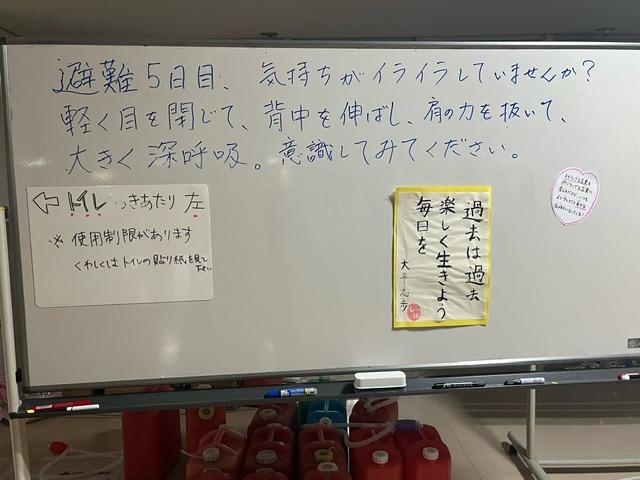 避難5日目、気持ちがイライラしていませんか?
軽く目を閉じて、背中を伸ばし、肩の力を抜いて、
大きく深呼吸。意識してみてください。
← トイレ つきあたり 左
※ 使用制限があります
くわしくはトイレの貼り紙を見て下さい
過去は過去
楽しく生きよう
毎日を
大平志歩